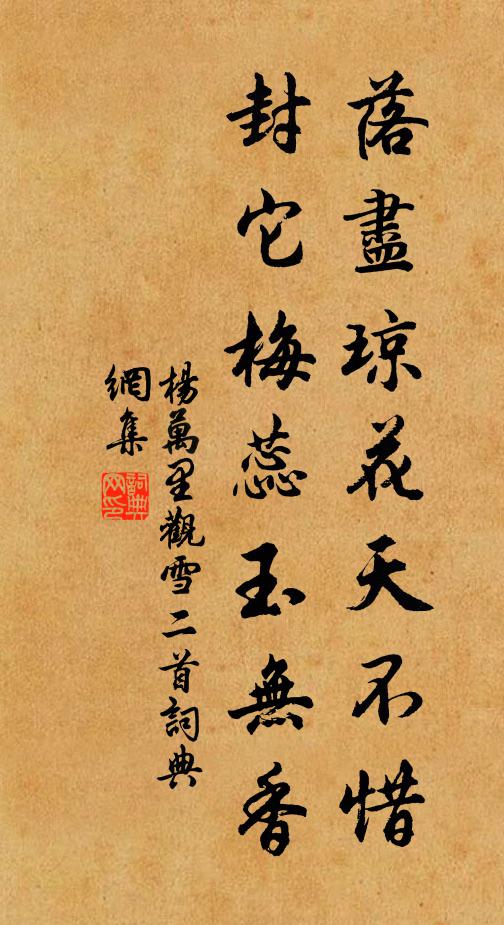 落盡琼花天不惜
封它梅蕊玉無香
楊萬里觀雪二首詞典
網集
詞典
网印